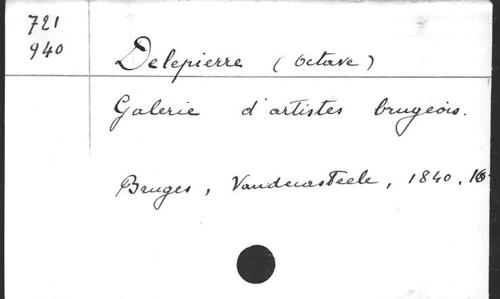 721
940
Delepierre (Octave)
Galerie d'artistes brugeois.
Bruges, Vandecasteele, 1840.